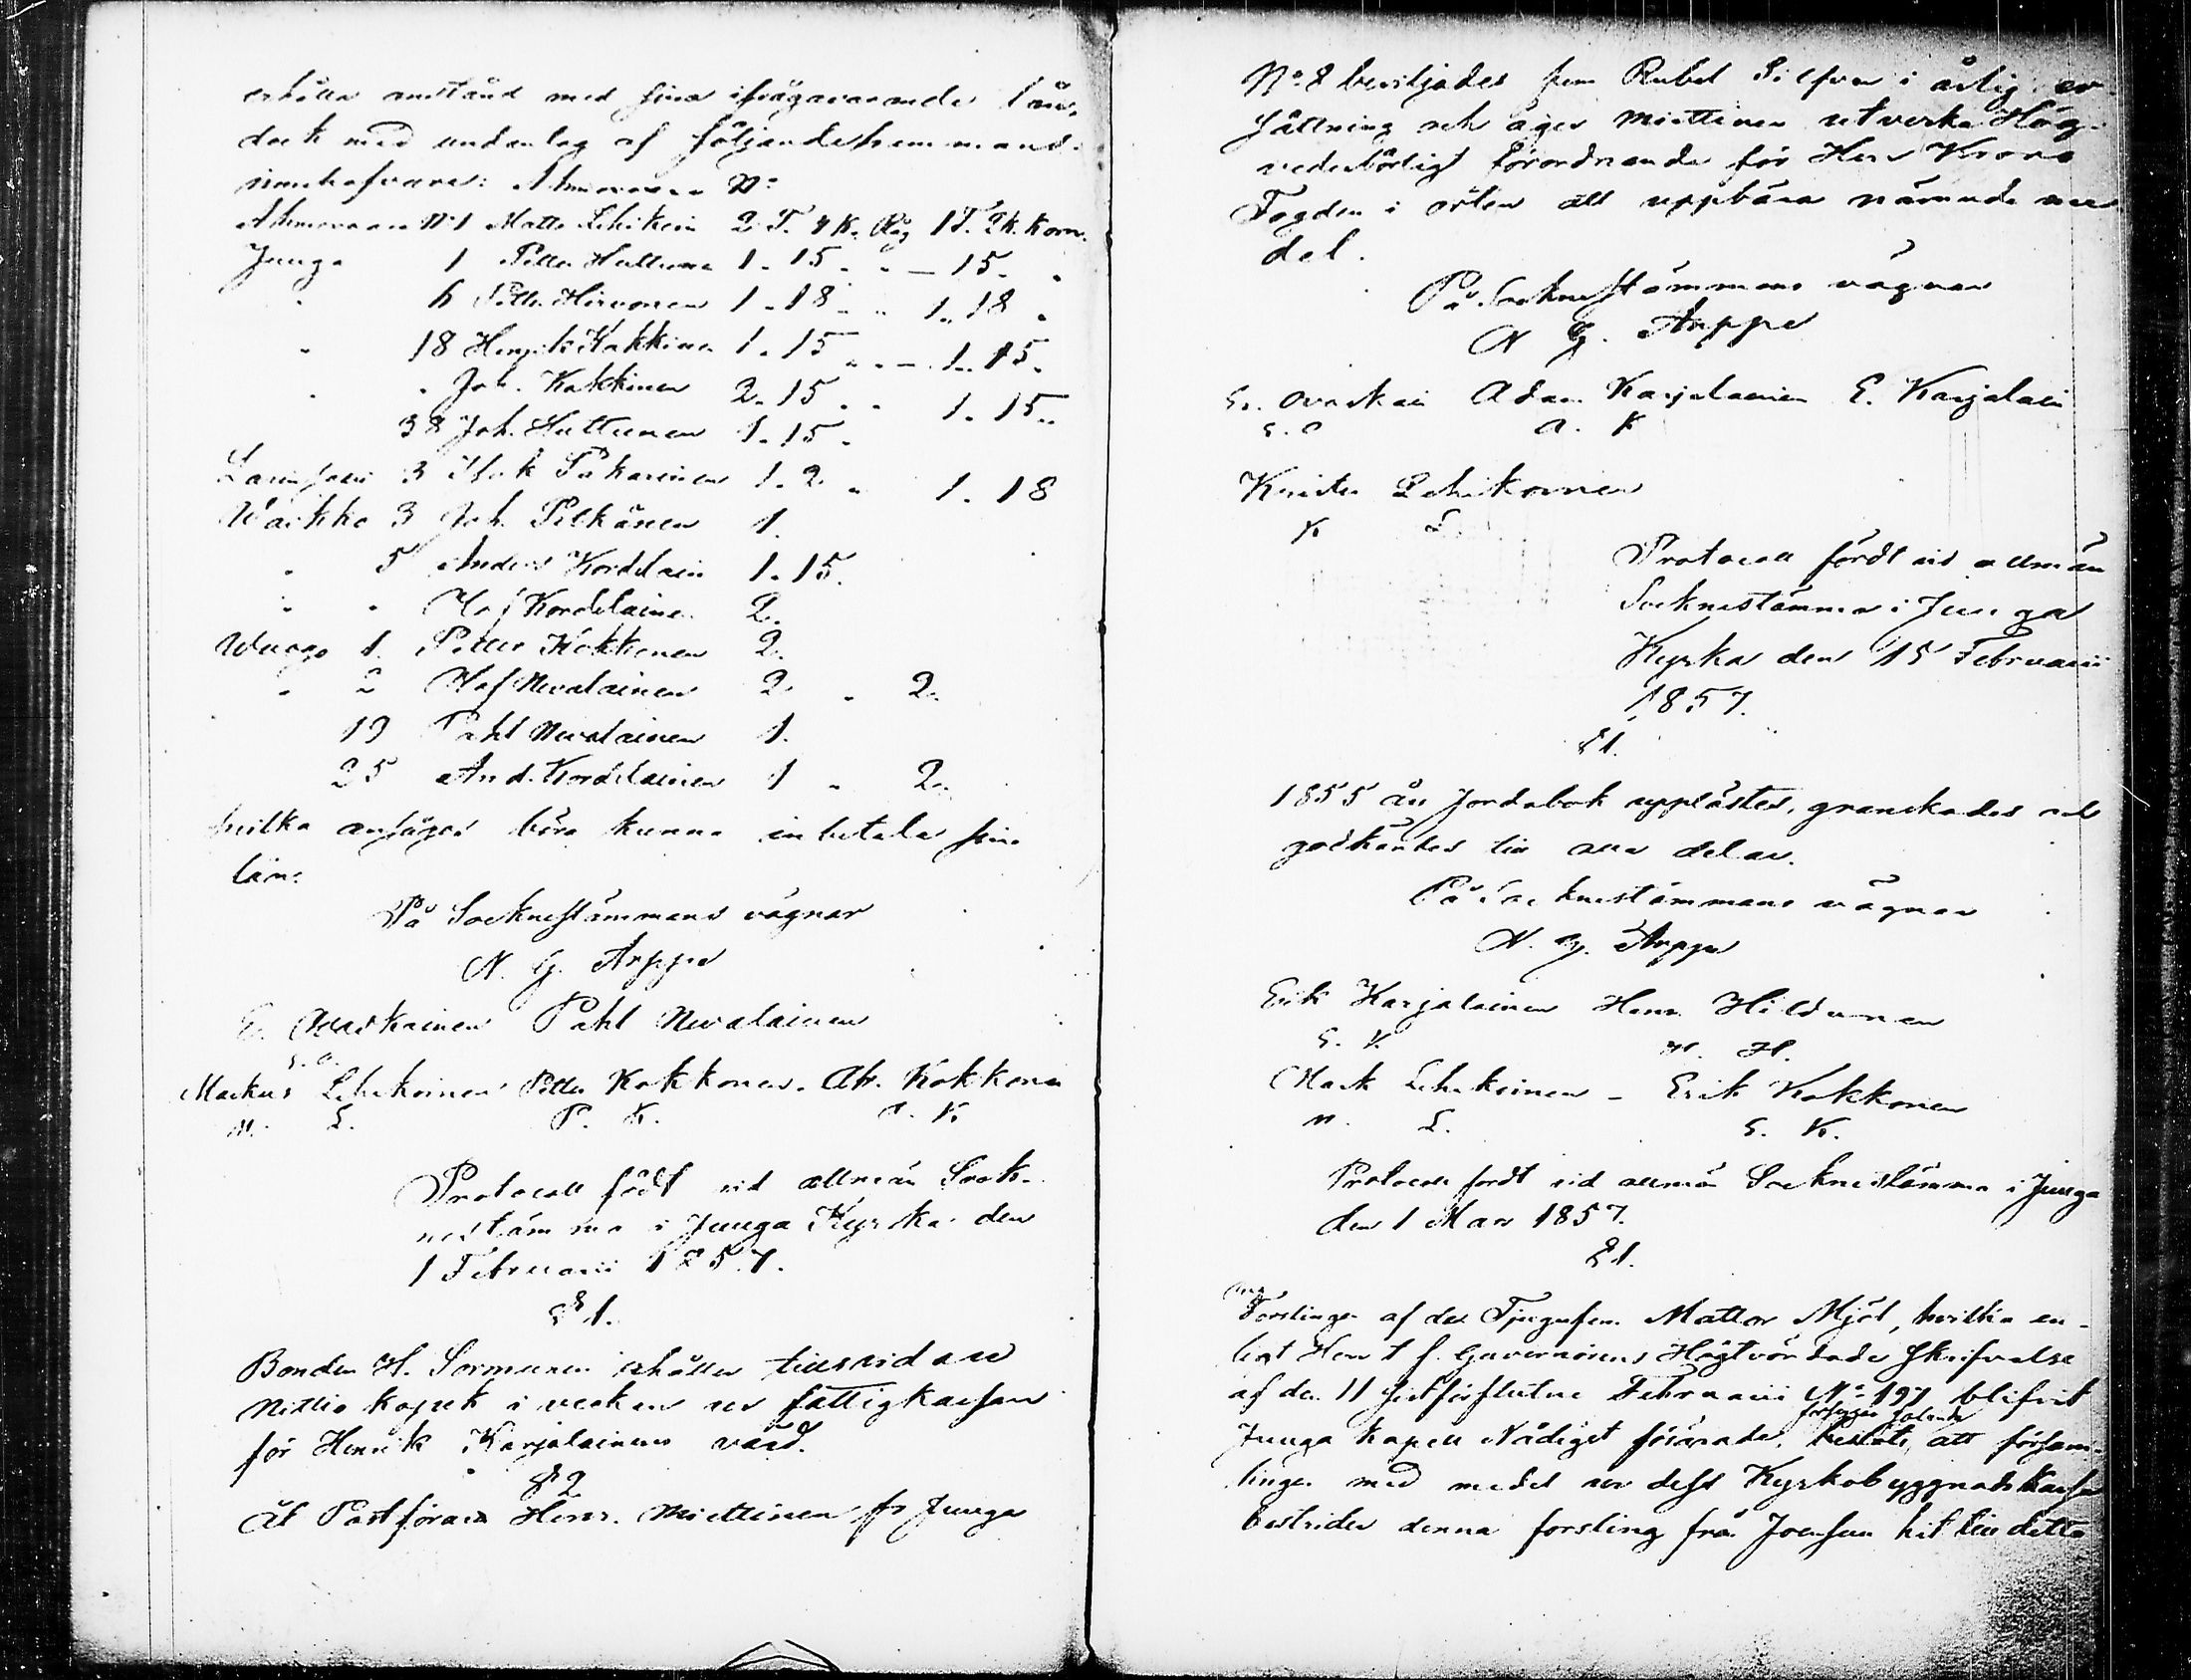 erhålla anstånd med sina ifrågavarande lån,
dock med undantag af följande hemmans-
innehafvare: Ahmovaara No
Ahmovaara No 1 Matts Lehikoin 2 T. 4 K. Råg 1 T. 2 K. Korn.
Juuga 1 Petter Huttunen 1. 15. " — 15. "
" 6 Petter Hirvonen 1. 18 " " 1. 18 "
" 18 Henrik Kakkinen 1. 15 " " — 1. 15.
" " Joh. Kakkinen 2. 15 " " 1. 15 "
38 Joh. Huttunen 1. 15 "
Larinsaari 3 Isak Pakarinen 1. 2 " 1. 18
Waikko 3 Joh. Pitkänen 1.
" 5 Anders Kordelain 1. 15.
" " Olof Kordelainen 2.
Wuoga 1. Petter Kokkonen 2.
" 2 Olof Nevalainen 2 " 2.
19 Pahl Nevalainen 1.
25 And. Kordelainen 1 " 2.
hvilka anságos böra kunna inbetala sina
lån.
På Sockneståmmans vägnar
N. G. Arppe
E. Ovaskainen Pahl Nevalainen
E. O.
Markus Lehikoinen Petter Kokkonen. Ab. Kokkonen
M. L. P. K. A. K
Protocoll fördt vid allmän Sock-
nestämma i Juuga Kyrka den
1 Februarii 1857.
§ 1.
Bonden H. Sormunen erhåller tillsvidare
Nittio kopek i veckan ur fattigkassan
för Henrik Karjalainens vård.
§ 2
Åt Postföraren Henr. Miettinen fr Juuga
No 8 beviljades fem Rubel Silfver i årlig er-
sättning och äger Miettinen utverka Hög-
vederbörligt förordnande för Herr Krono
Fogden i orten att uppbära nämnde me-
del.
På Socknestämmans vägnar
N G. Arppe
Er. Ovaskai Adam Karjalainen E. Karjalain
E. O A. K
Krister Lehikoinen
K L.
Protocoll fördt vid allmän
Socknestämma i Juuga
Kyrka den 15 Februarii
1857.
§ 1.
1855 års Jordebok upplästes, granskades och
godkändes till alla delar.
På Socknestämmans vägnar
N. G. Arppe
Erik Karjalainen Henr. Hildunen
E. K. H. H.
Mark Lehikoinen - Erik Kokkonen
M. L. E. K.
Protocoll fördt vid allmän Socknestämma i Juuga
den 1 Mars 1857.
§ 1.
Ang
Forslingen af de Tjugufem Mattor Mjöl, hvilka en-
ligt Herr t. f. Guvernörens Högtvördade skrifvelse
af den 11 sistförflutne Februarii No 197 blifvit
Juuga Kapell Nådigst förärade, beslöts, att försam-
lingen med medel ur dess Kyrkobyggnads Kassa
bestrider denna forsling från Joensuu hit till detta